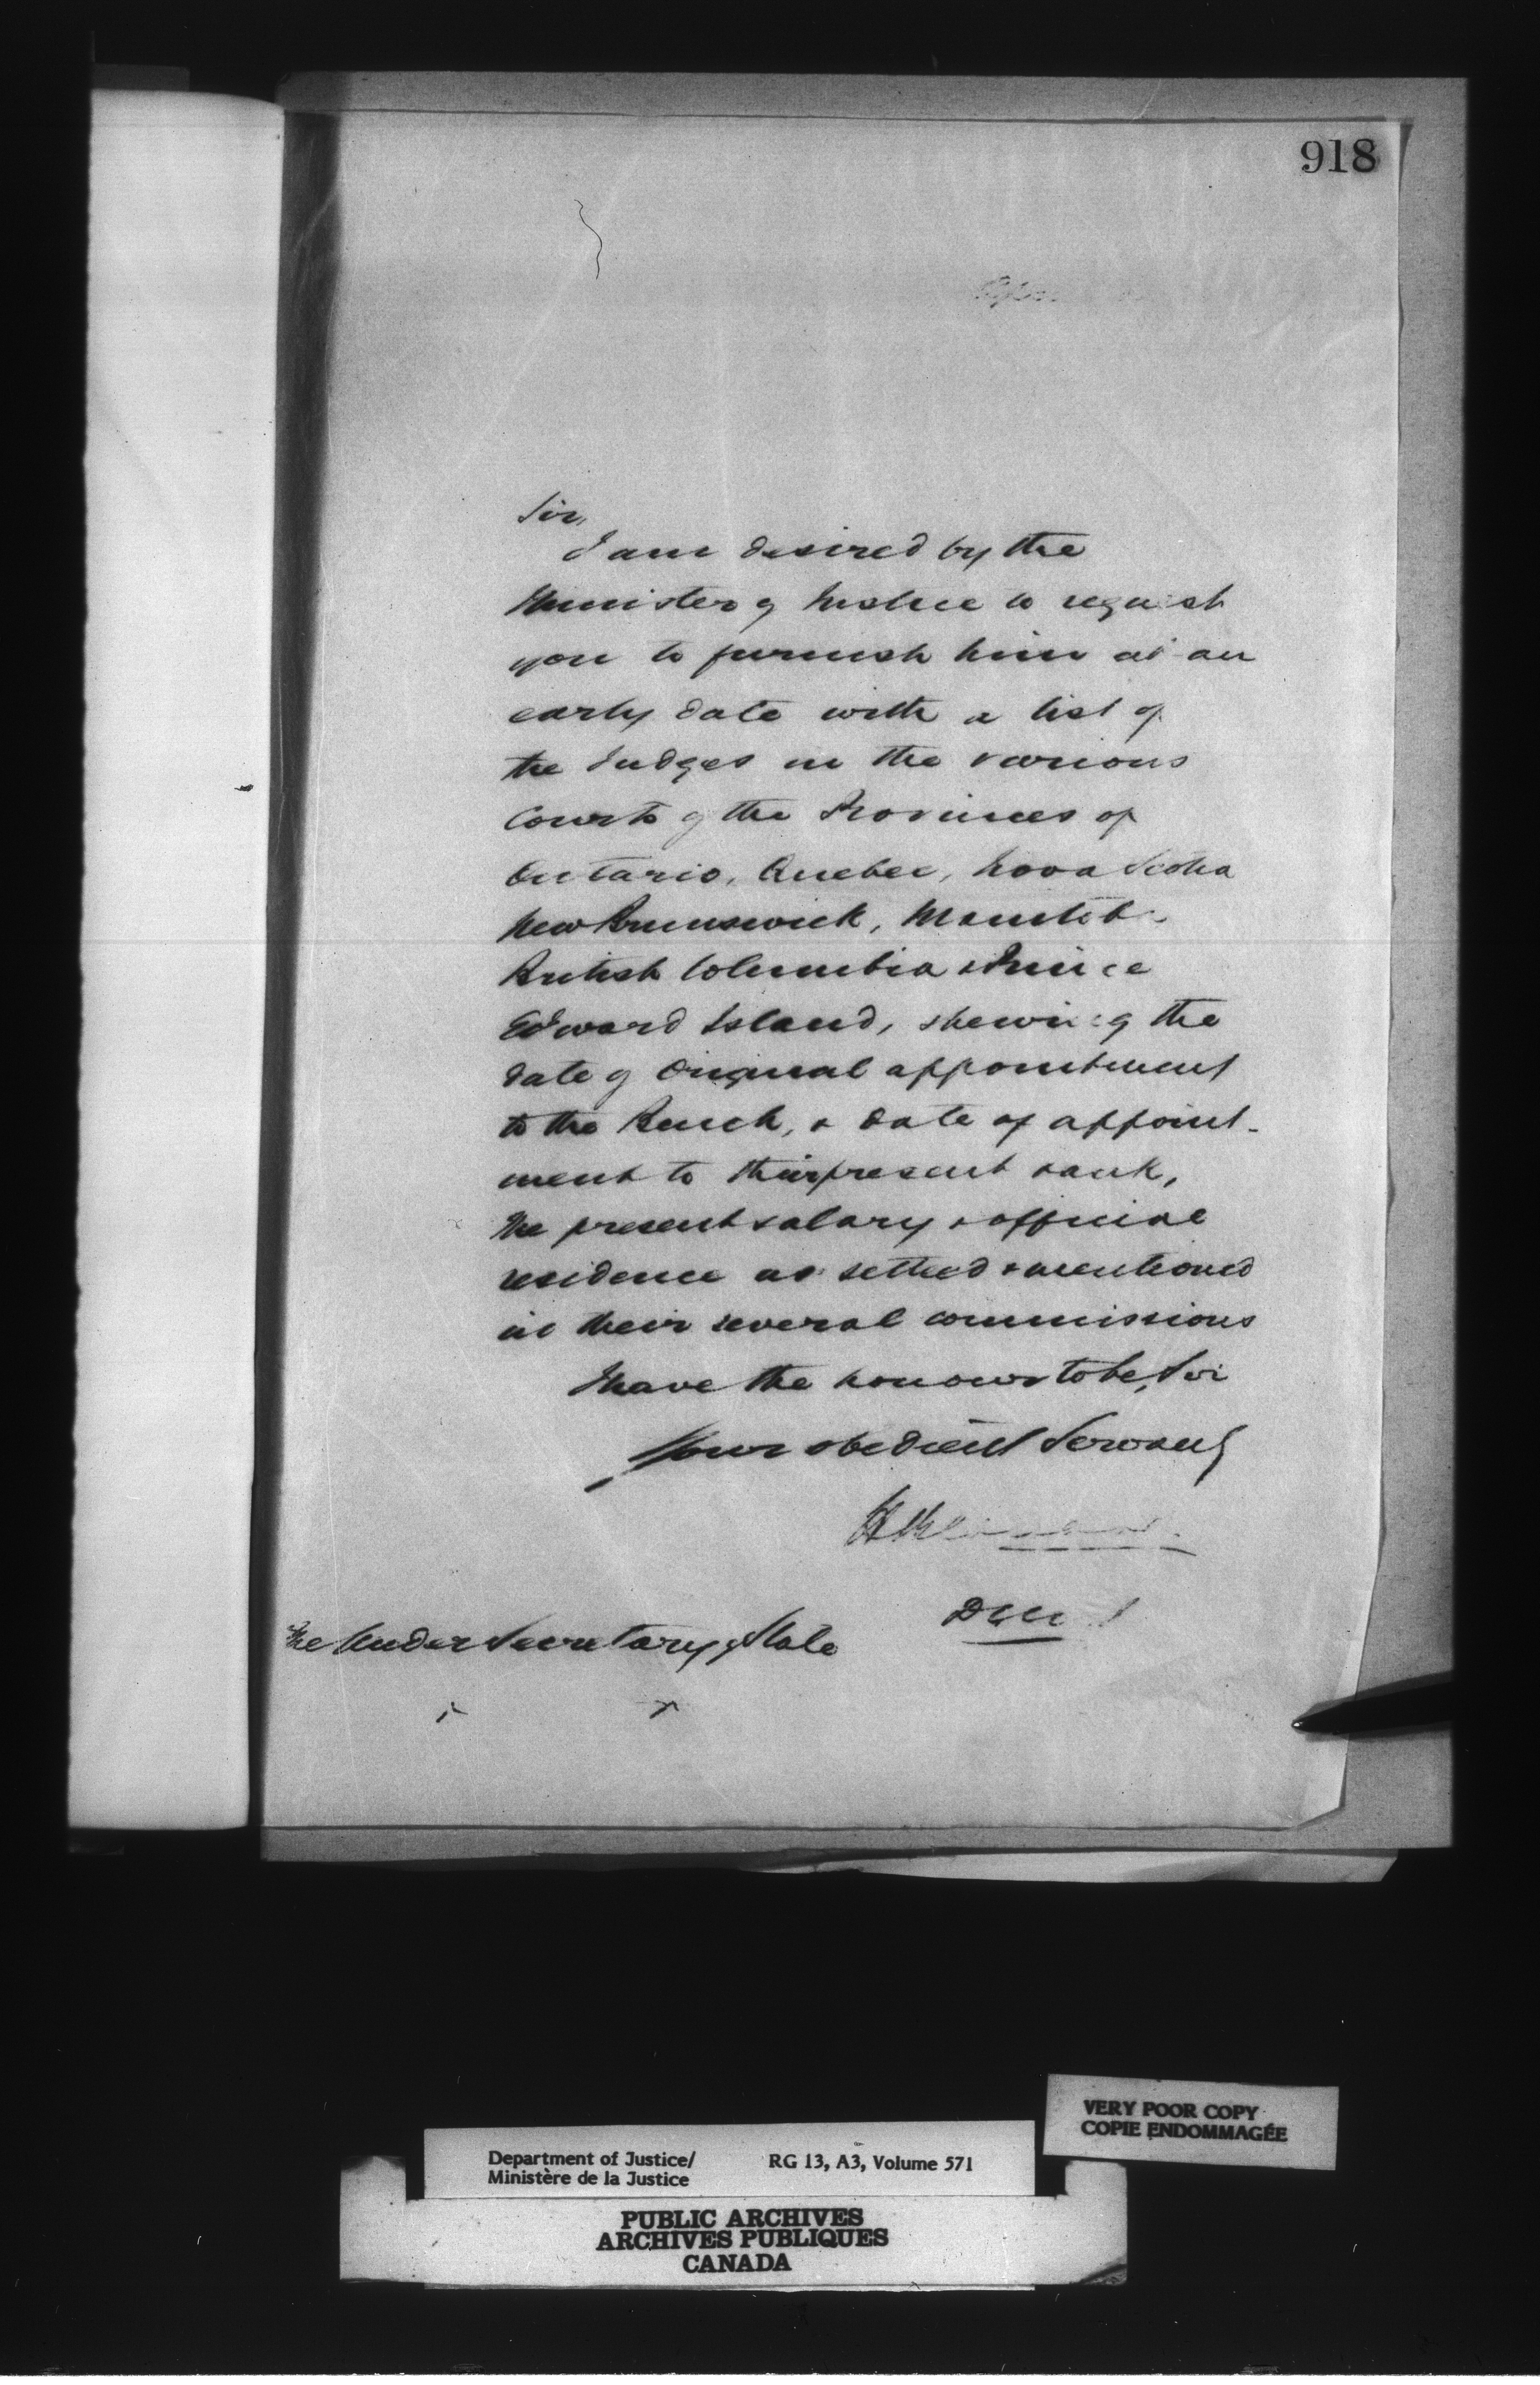 918
Sir,
I am desired by the
Minister of Justice to request
you to furnish him at an
early date with a list of
the Judges in the various
Courts of the Provinces of
Ontario, Quebec, Nova Scotia
New Brunswick, Manitoba
British Columbia & Prince
Edward Island, shewing the
date of Original appointment
to the Bench, & date of appoint-
ment to their present rank,
the present salary & official
residence as settled & mentioned
in their several commissions
I have the honour to be, Sir
Your obedient Servant
The Under Secretary of State
VERY POOR COPY
COPIE ENDOMMAGÉE
Department of Justice/ RG 13, A3, Volume 571
Ministère de la Justice
PUBLIC ARCHIVES
ARCHIVES PUBLIQUES
CANADA